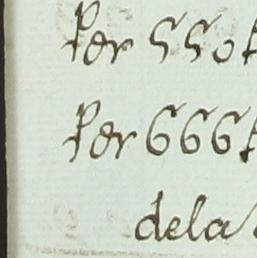 Per 550
Per 666
dela